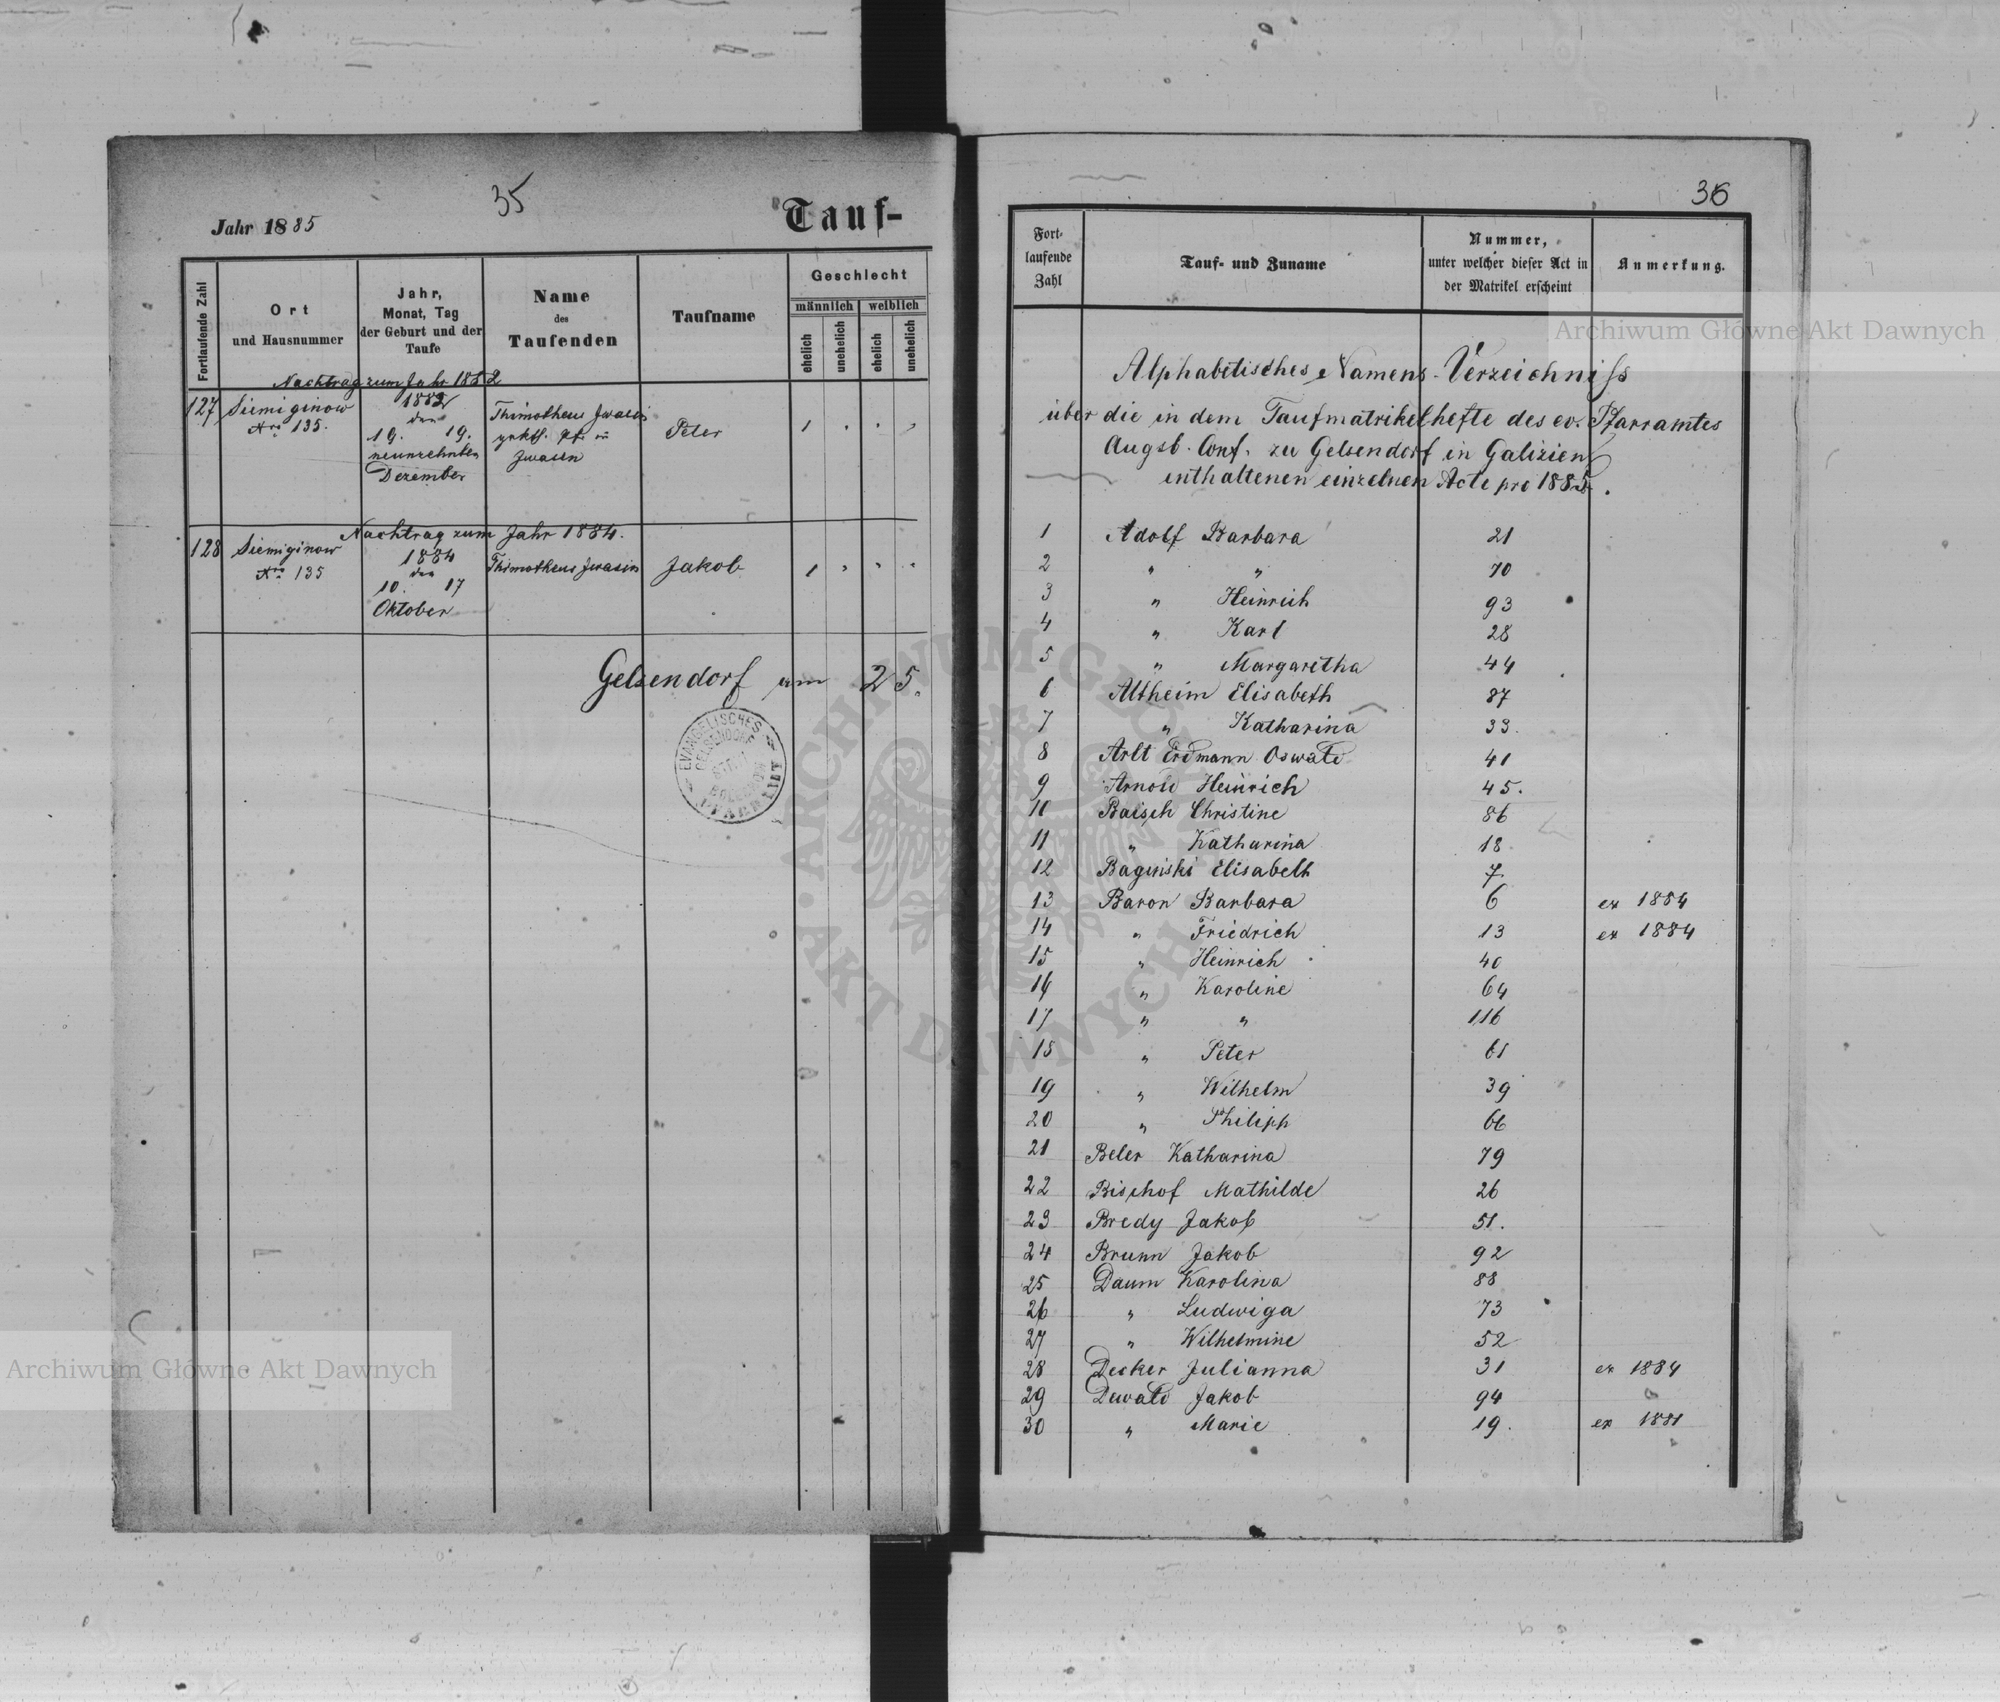 35
Jahr 1885
Tauf-
Fortlaufende Zahl
Ort
und Hausnummer
Jahr,
Monat, Tag
der Geburt und der
Taufe
Name
des
Taufenden
Taufname
Geschlecht
männlich weiblich
ehelich unehelich ehelich unehelich
Nachtrag zum Jahr 1882
127 Siemiginow
Nro 135.
1882
den
19. 19.
neunzehnten
Dezember
Thimotheus
Peter
Nachtrag zum Jahr 1884.
128 Siemiginow
Nro 135
1884
den
10. 17
Oktober
Thimotheus
Jakob
Gelsendorf am 25.
EVANGELISCHES
GELSENDORF
PFARRAMT
36
Fort-
laufende
Zahl
Tauf- und Zuname
Nummer,
unter welcher dieser Act in
der Matrikel erscheint
Anmerkung.
Alphabetisches Namens-Verzeichniss
über die in dem Taufmatrikelhefte des ev. Pfarramtes
Augsb. Conf. zu Gelsendorf in Galizien
enthaltenen einzelnen Acte pro 1885.
1 Adolf Barbara 21
2 " " 70
3 " Heinrich 93
4 " Karl 28
5 " Margaretha 44
6 Altheim Elisabeth 87
7 " Katharina 33.
8 Arlt Erdmann Oswald 41
9 Arnold Heinrich 45.
10 Baisch Christine 86
11 " Katharina 18
12 Baginski Elisabeth 7
13 Baron Barbara 6 ex 1884
14 " Friedrich 13 ex 1884
15 " Heinrich 40
16 " Karoline 64
17 " " 116
18 " Peter 61
19 " Wilhelm 39
20 " Philipp 66
21 Beler Katharina 79
22 Bischof Mathilde 26
23 Bredy Jakob 51.
24 Brunn Jakob 92
25 Daum Karolina 88
26 " Ludwiga 73
27 " Wilhelmine 52
28 Decker Julianna 31 ex 1884
29 Dewald Jakob 94
30 " Marie 19. ex 1881
Archiwum Główne Akt Dawnych
ARCHIWUM GŁÓWNE AKT DAWNYCH
Archiwum Główne Akt Dawnych